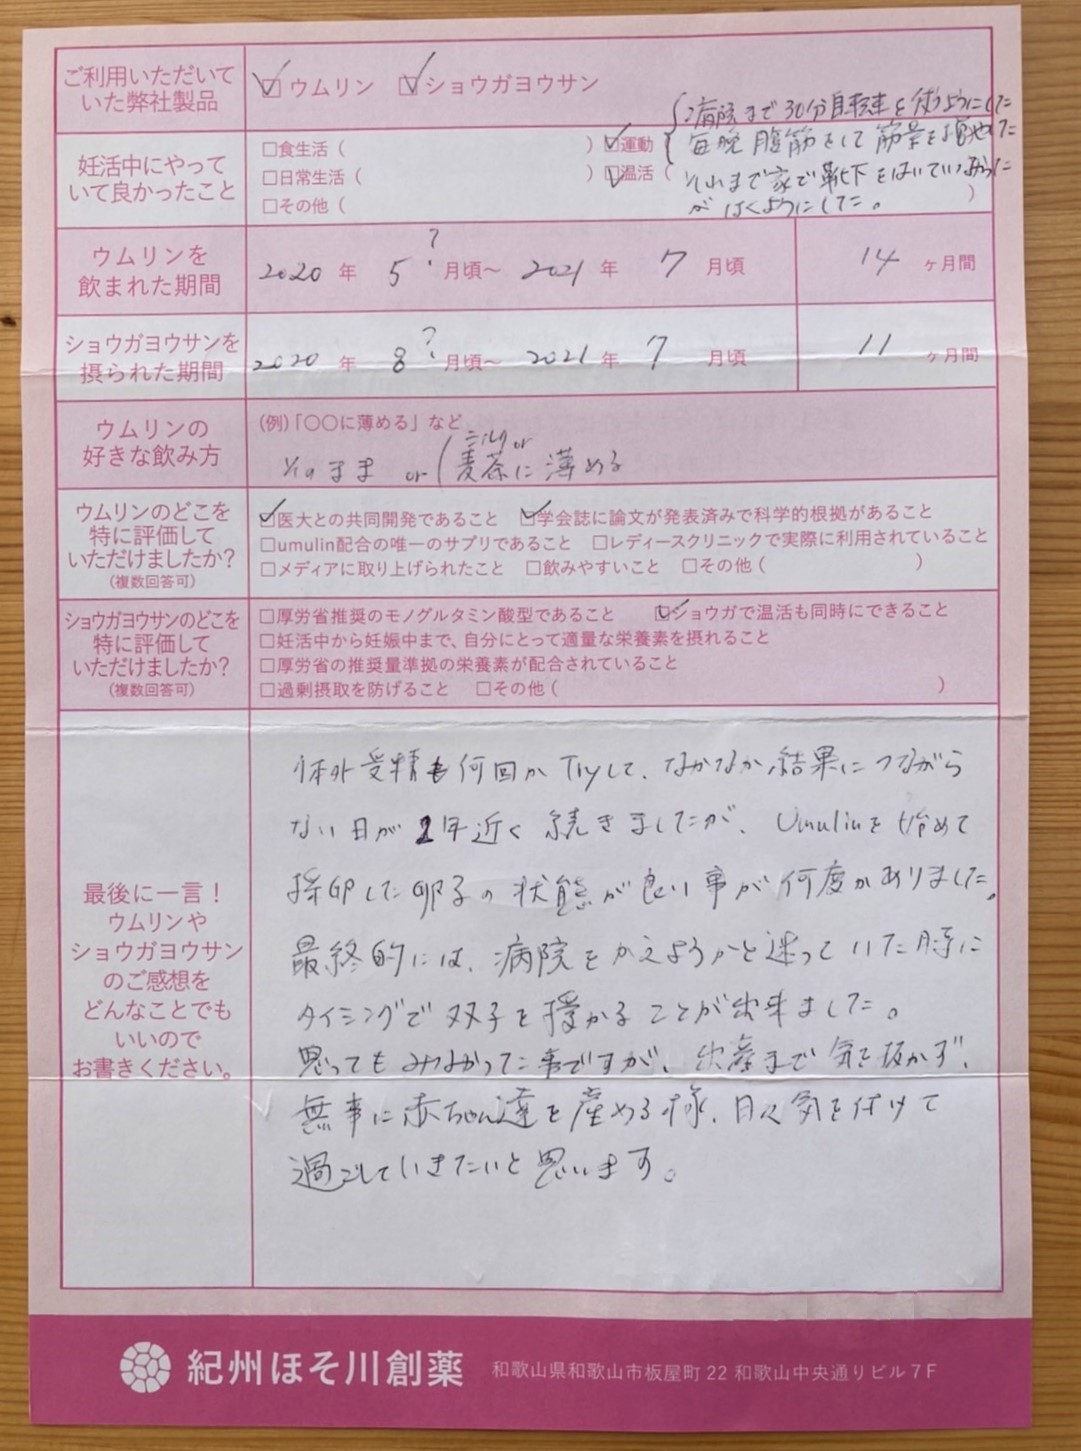 ご利用いただいて
いた弊社製品
☑ウムリン ☑ショウガヨウサン
妊活中にやって
いて良かったこと
□食生活（ ）
□日常生活（ ）
□その他（ ）
☑運動
☑温活（
病院まで30分自転車を使うようにした
毎晩腹筋をして筋量を増やした
それまで家で靴下をはいていなかった
がはくようにした。
）
ウムリンを
飲まれた期間
2020年 5?月頃〜 2021年 7月頃 14ヶ月間
ショウガヨウサンを
摂られた期間
2020年 8?月頃〜 2021年 7月頃 11ヶ月間
ウムリンの
好きな飲み方
(例)「〇〇に薄める」など
そのまま or (ミルクor
麦茶に薄める
ウムリンのどこを
特に評価して
いただけましたか?
(複数回答可)
☑医大との共同開発であること ☑学会誌に論文が発表済みで科学的根拠があること
□umulin配合の唯一のサプリであること □レディースクリニックで実際に利用されていること
□メディアに取り上げられたこと □飲みやすいこと □その他（ ）
ショウガヨウサンのどこを
特に評価して
いただけましたか?
(複数回答可)
□厚労省推奨のモノグルタミン酸型であること ☑ショウガで温活も同時にできること
□妊活中から妊娠中まで、自分にとって適量な栄養素を摂れること
□厚労省の推奨量準拠の栄養素が配合されていること
□過剰摂取を防げること □その他（ ）
最後に一言！
ウムリンや
ショウガヨウサン
のご感想を
どんなことでも
いいので
お書きください。
体外受精も何回かTryして、なかなか結果につながら
ない日が2年近く続きましたが、Umulinを始めて
採卵した卵子の状態が良い事が何度かありました。
最終的には、病院をかえようかと迷っていた時に
タイミングで双子を授かることが出来ました。
思ってもみなかった事ですが、出産まで気を抜かず、
無事に赤ちゃん達を産める様、日々気を付けて
過ごしていきたいと思います。
紀州ほそ川創薬 和歌山県和歌山市板屋町 22 和歌山中央通りビル 7F